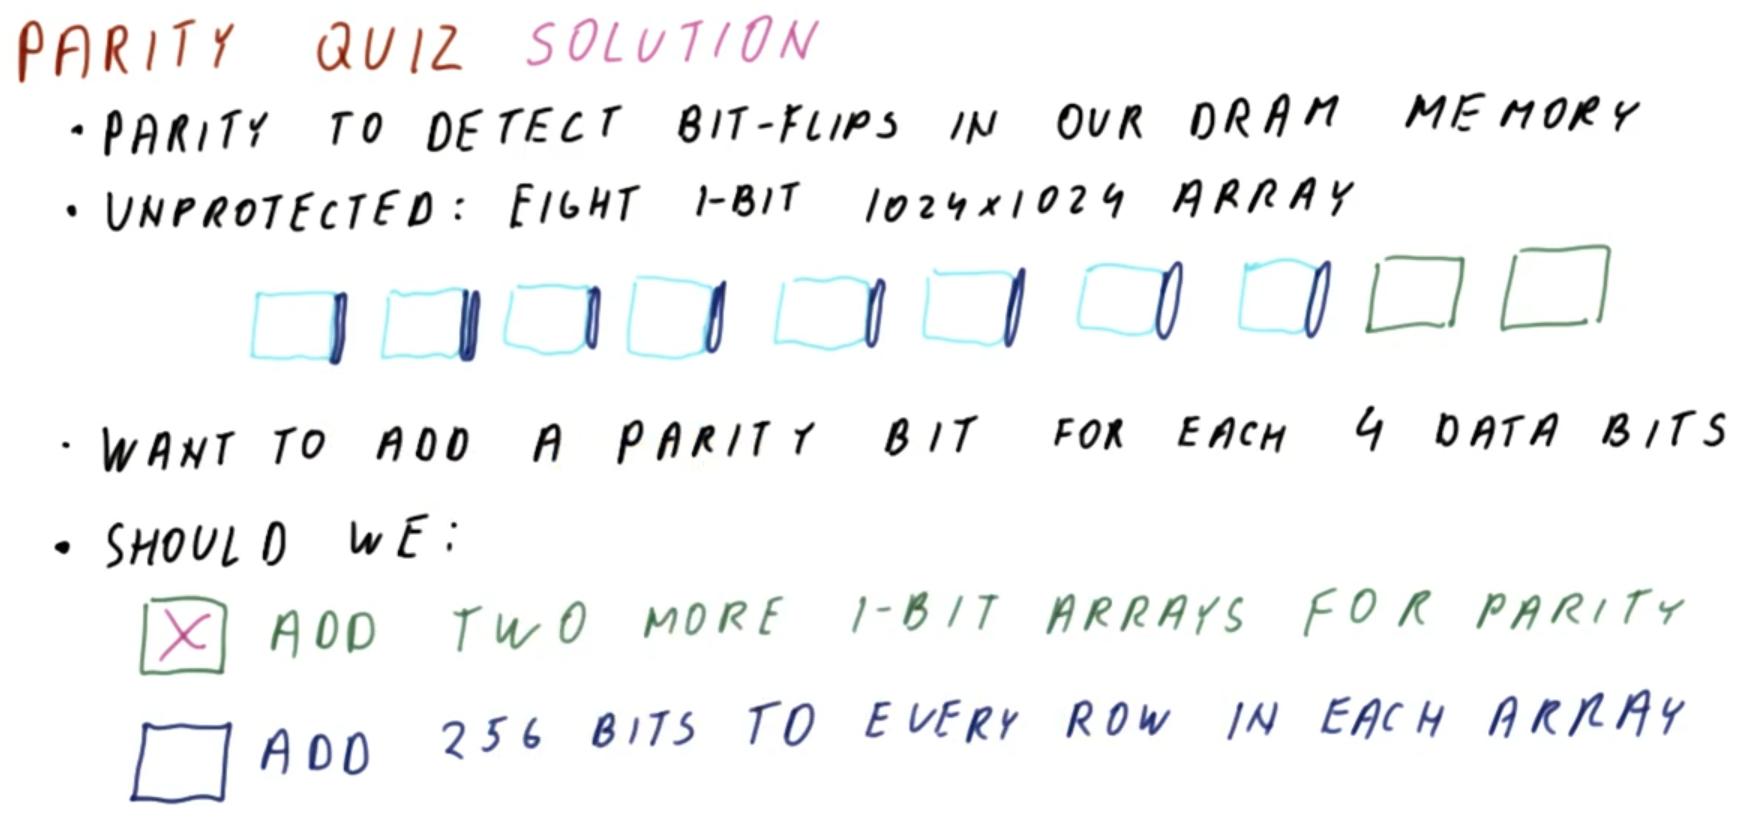 PARITY QUIZ SOLUTION
• PARITY TO DETECT BIT-FLIPS IN OUR DRAM MEMORY
• UNPROTECTED: EIGHT 1-BIT 1024x1024 ARRAY
• WANT TO ADD A PARITY BIT FOR EACH 4 DATA BITS
• SHOULD WE:
X ADD TWO MORE 1-BIT ARRAYS FOR PARITY
ADD 256 BITS TO EVERY ROW IN EACH ARRAY